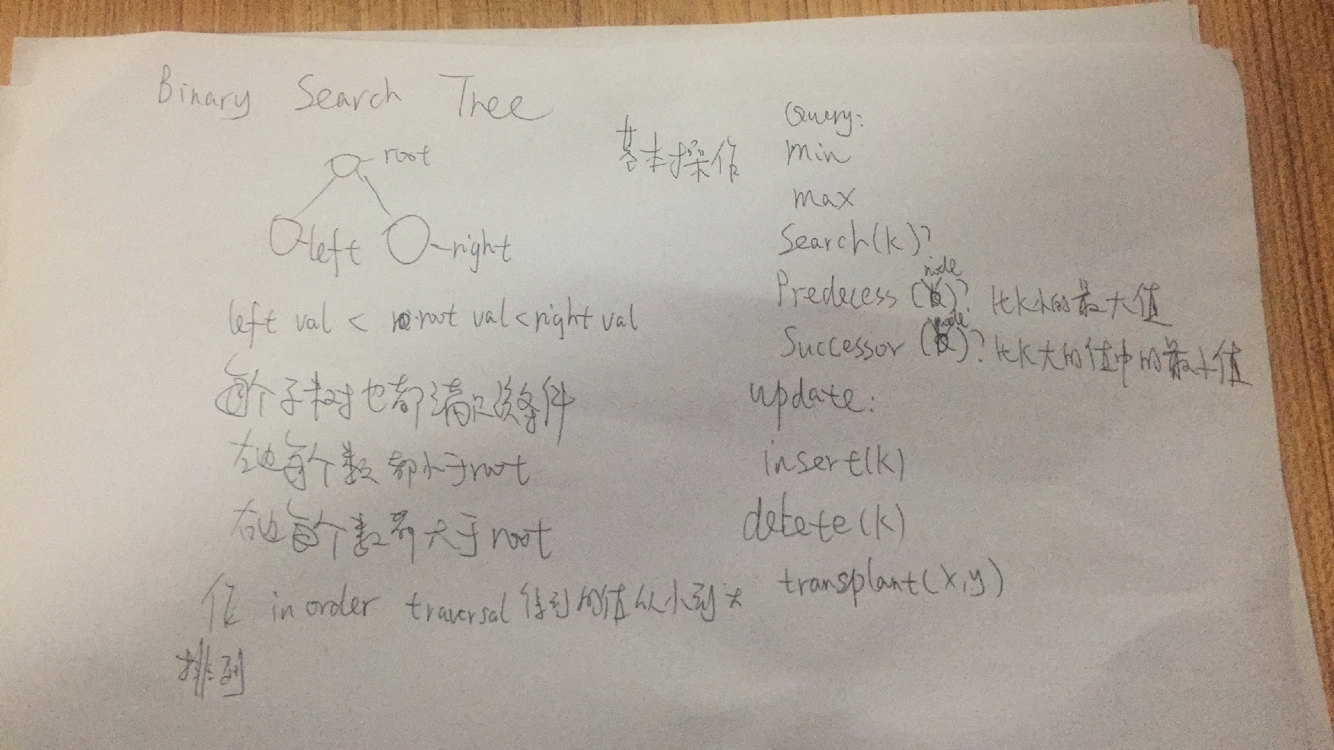 Binary Search Tree
root
left
right
left val < root val < right val
每个子树也都满足该条件
左边每个数都小于root
右边每个数都大于root
作 in order traversal 得到的值从小到大
排列
基本操作
Query:
min
max
Search(k)?
Predecess (node)? 比k小的最大值
Successor (node)? 比k大的值中的最小值
update:
insert(k)
detete(k)
transplant(x,y)